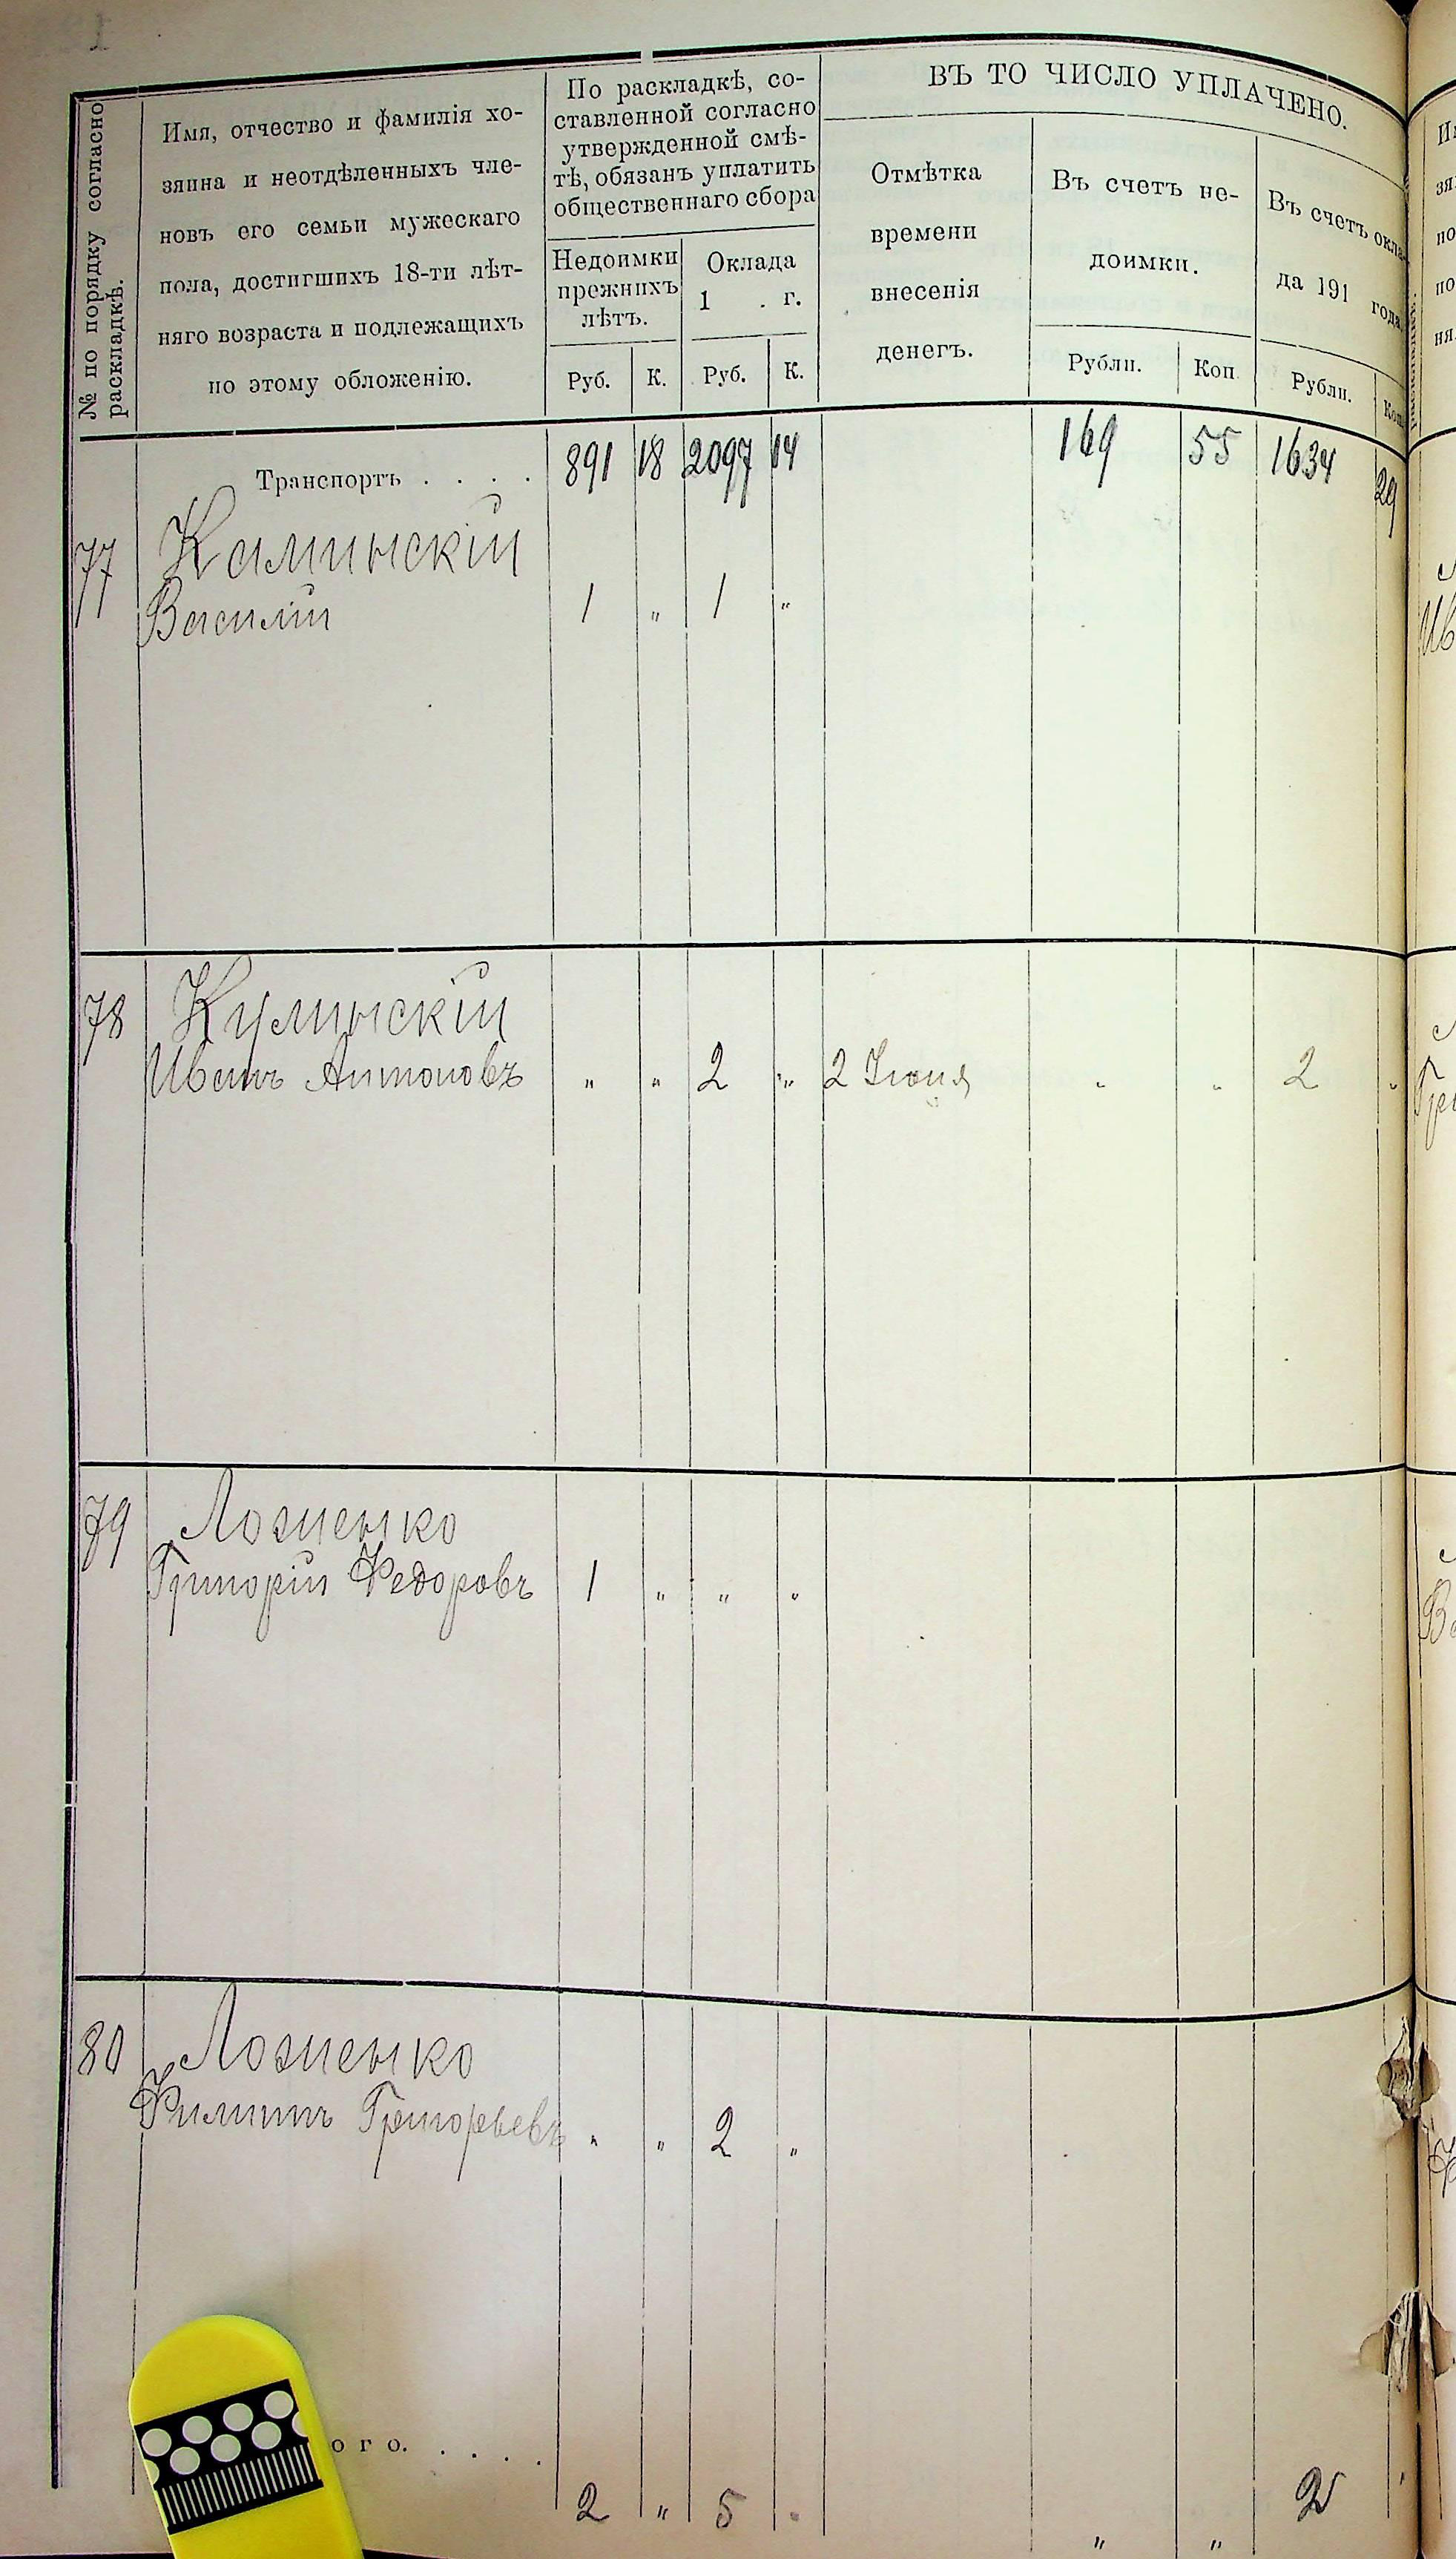 № по порядку согласно
раскладкѣ.
Имя, отчество и фамилія хо-
зяина и неотдѣленныхъ чле-
новъ его семьи мужескаго
пола, достигшихъ 18-ти лѣт-
няго возраста и подлежащихъ
по этому обложенію.
По раскладкѣ, со-
ставленной согласно
утвержденной смѣ-
тѣ, обязанъ уплатить
общественнаго сбора
Недоимки
прежнихъ
лѣтъ.
Оклада
1 . г.
Руб. К. Руб. К.
ВЪ ТО ЧИСЛО УПЛАЧЕНО.
Отмѣтка
времени
внесенія
денегъ.
Въ счетъ не-
доимки.
Рубли. Коп
Въ счетъ окла-
да 191 года.
Рубли. Коп
Транспортъ . . . . 891 18 2097 14 169 55 1634 29
77 Каминскій
Василій 1 „ 1 „
78 Куминскій
Иванъ Антоновъ „ „ 2 „ 2 Іюня „ „ 2 „
79
Григорій Федоровъ 1 „ „ „
80
Филиппъ Григорьевъ „ „ 2 „
ого. . . . .
2 „ 5 „ „ „ 2 „